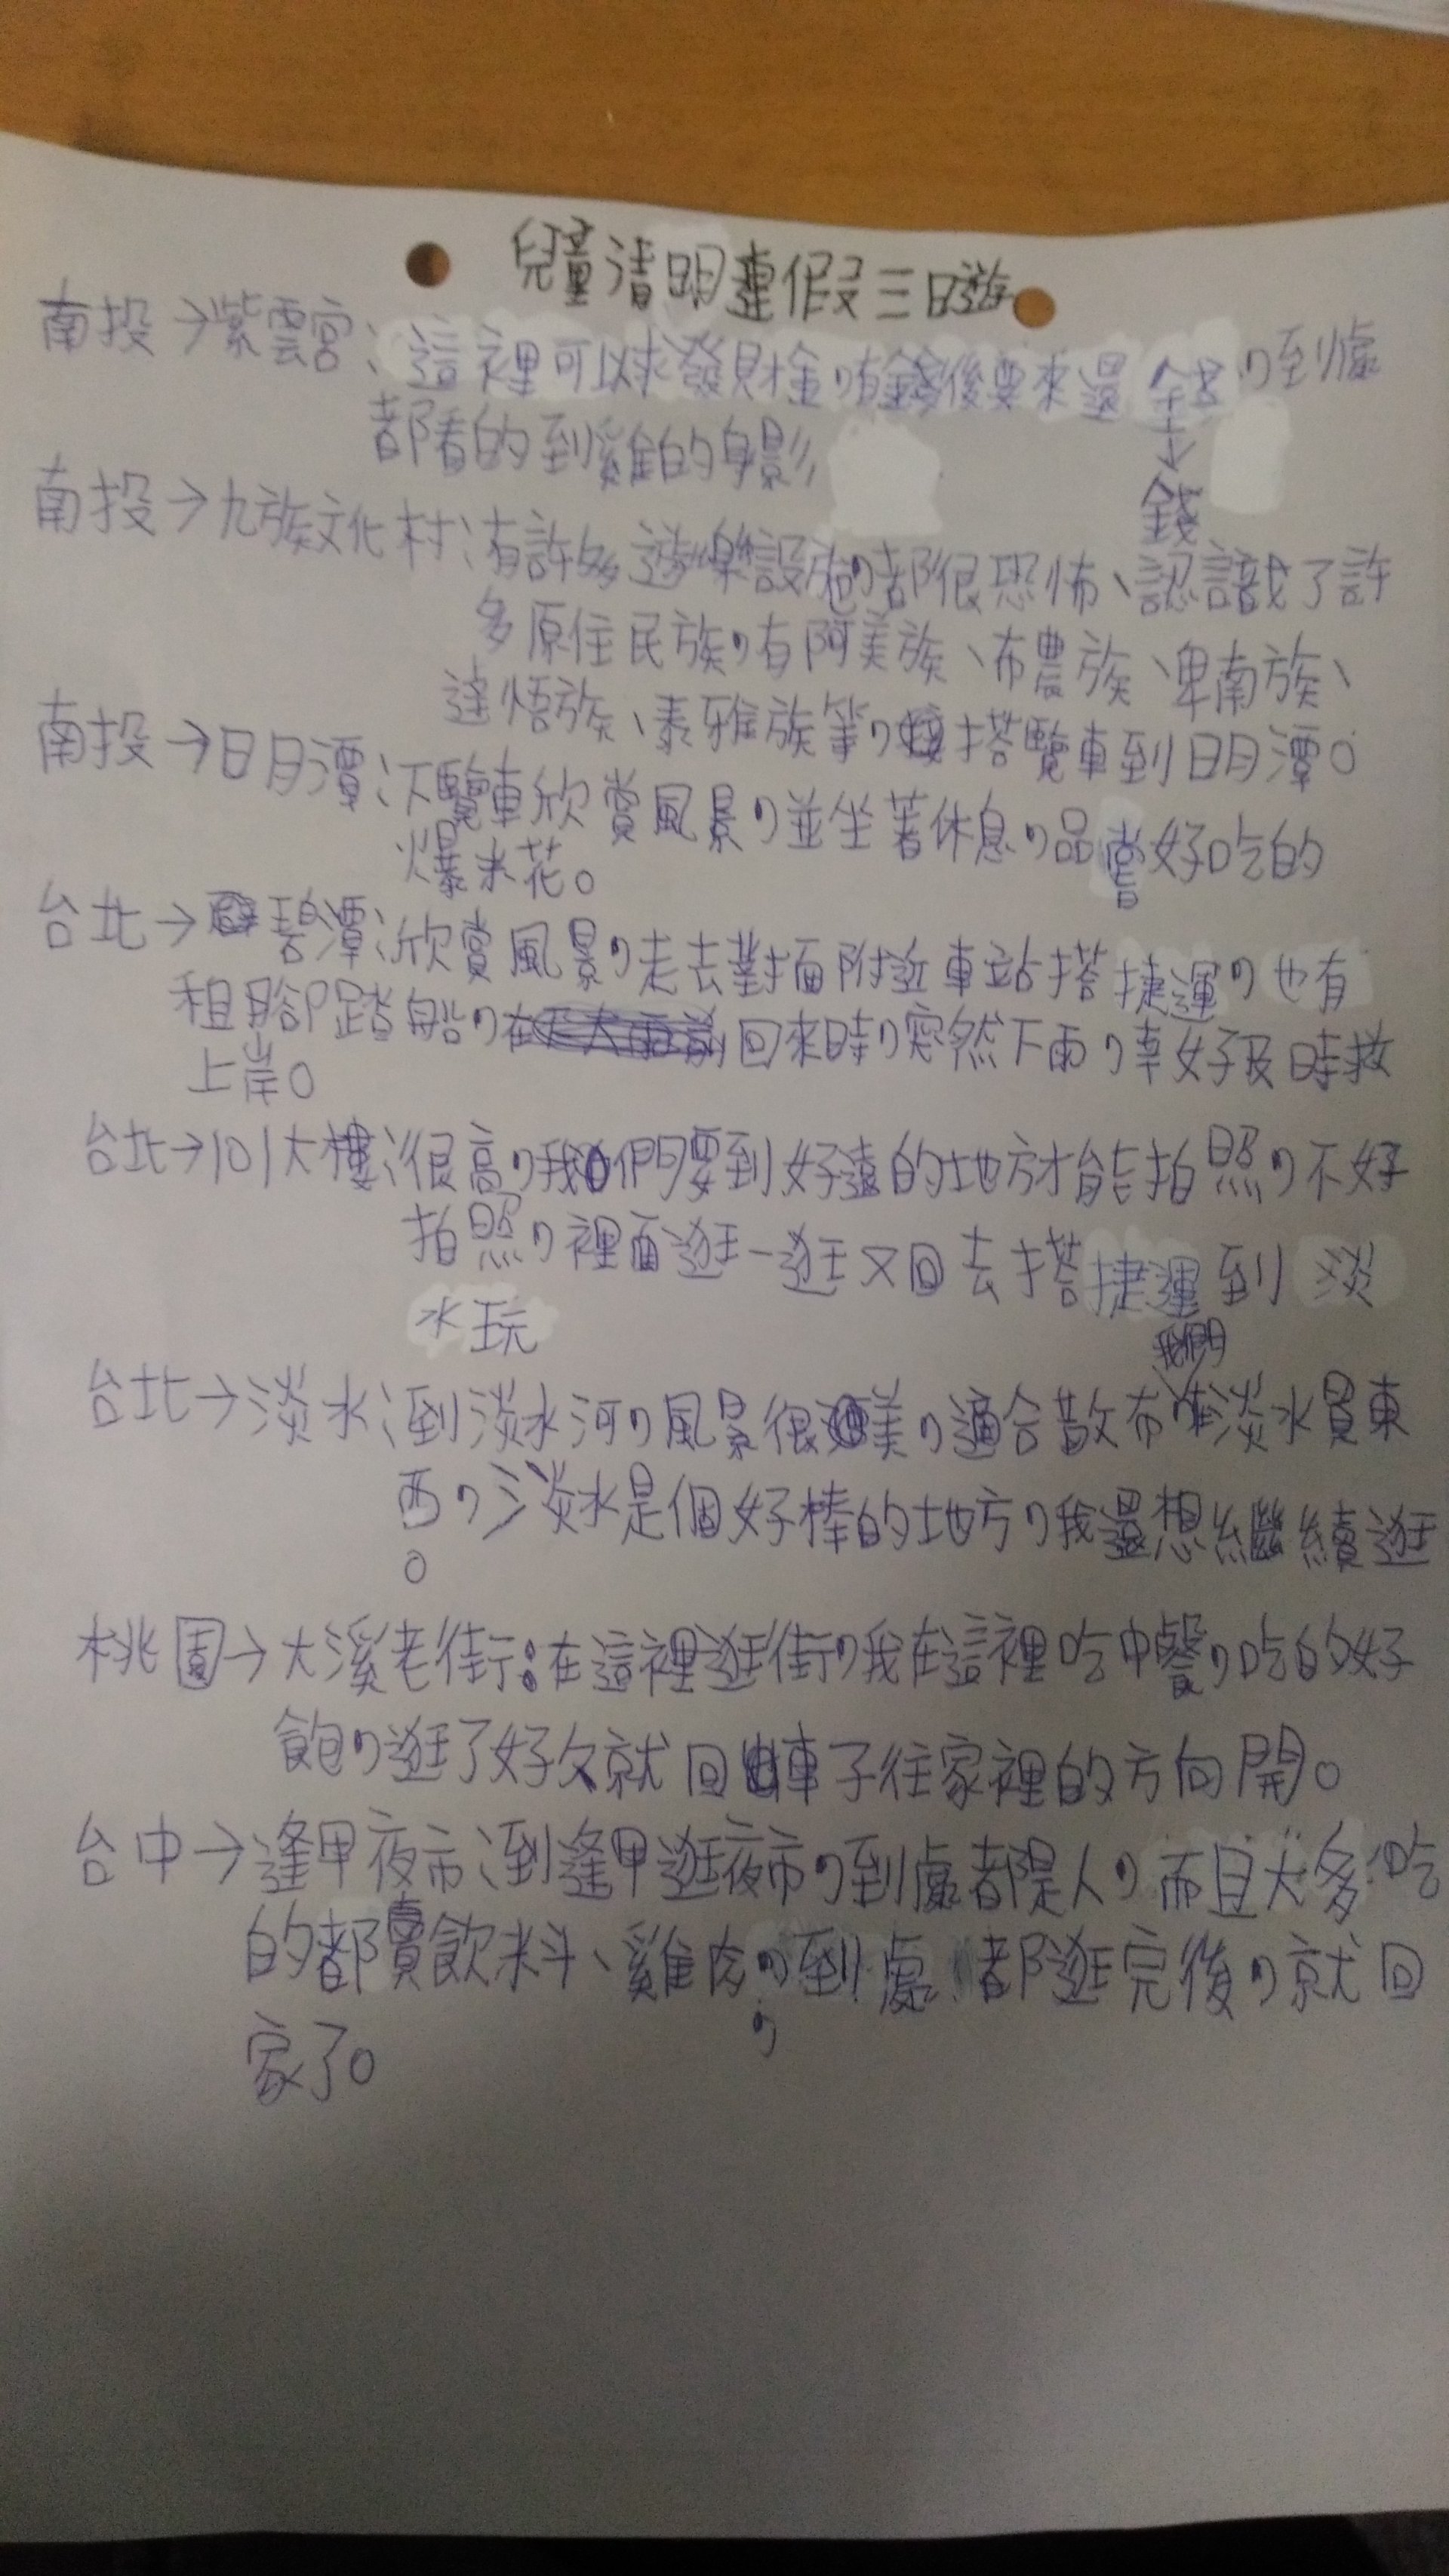 兒童清明連假三日遊
南投→紫雲宮:這裡可以求發財金,有錢後要來還錢,到處
都看的到雞的身影
錢
南投→九族文化村:有許多遊樂設施,都很恐怖、認識了許
多原住民族,有阿美族、布農族、卑南族、
達悟族、泰雅族等,搭覽車到日月潭。
南投→日月潭:下覽車欣賞風景,並坐著休息,品嘗好吃的
爆米花。
台北→碧潭:欣賞風景,走去對面附近車站搭捷運,也有
租腳踏船,回來時,突然下雨,幸好及時救
上岸。
台北→101大樓:很高,我們要到好遠的地方才能拍照,不好
拍照,裡面逛一逛又回去搭捷運到淡
水玩
台北→淡水:到淡水河,風景很美,適合散布,在淡水買東
西,淡水是個好棒的地方,我還想繼續逛
。
桃園→大溪老街:在這裡逛街,我在這裡吃中餐,吃的好
飽,逛了好久就回車子往家裡的方向開。
台中→逢甲夜市:到逢甲逛夜市,到處都是人,而且大多吃
的都賣飲料、雞肉,到處都逛完後,就回
家了。